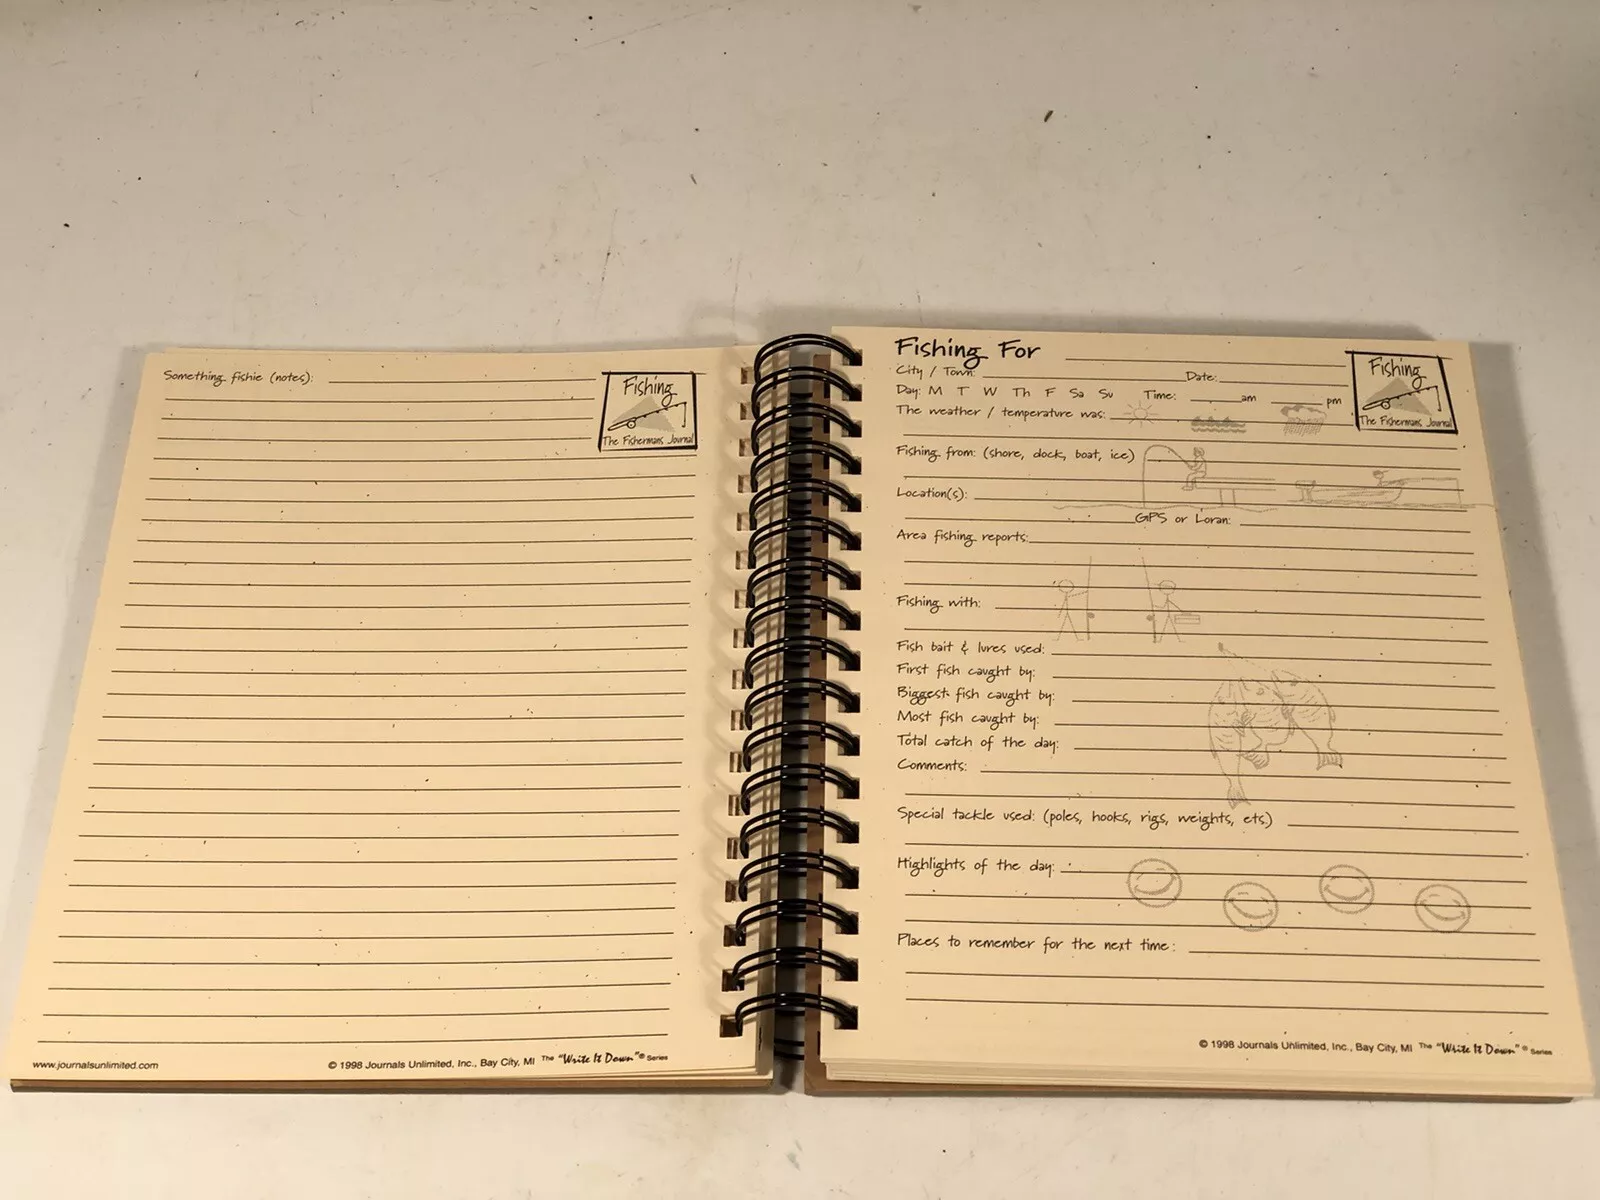 Something fishie (notes):
Fishing
The Fishermans Journal
www.journalsunlimited.com
© 1998 Journals Unlimited, Inc., Bay City, MI The "Write It Down"® Series
Fishing For
City / Town:
Date:
Day: M T W Th F Sa Su Time: am pm
The weather / temperature was:
Fishing
The Fishermans Journal
Fishing from: (shore, dock, boat, ice)
Location(s):
GPS or Loran:
Area fishing reports:
Fishing with:
Fish bait & lures used:
First fish caught by:
Biggest fish caught by:
Most fish caught by:
Total catch of the day:
Comments:
Special tackle used: (poles, hooks, rigs, weights, ets.)
Highlights of the day:
Places to remember for the next time:
© 1998 Journals Unlimited, Inc., Bay City, MI The "Write It Down"® Series